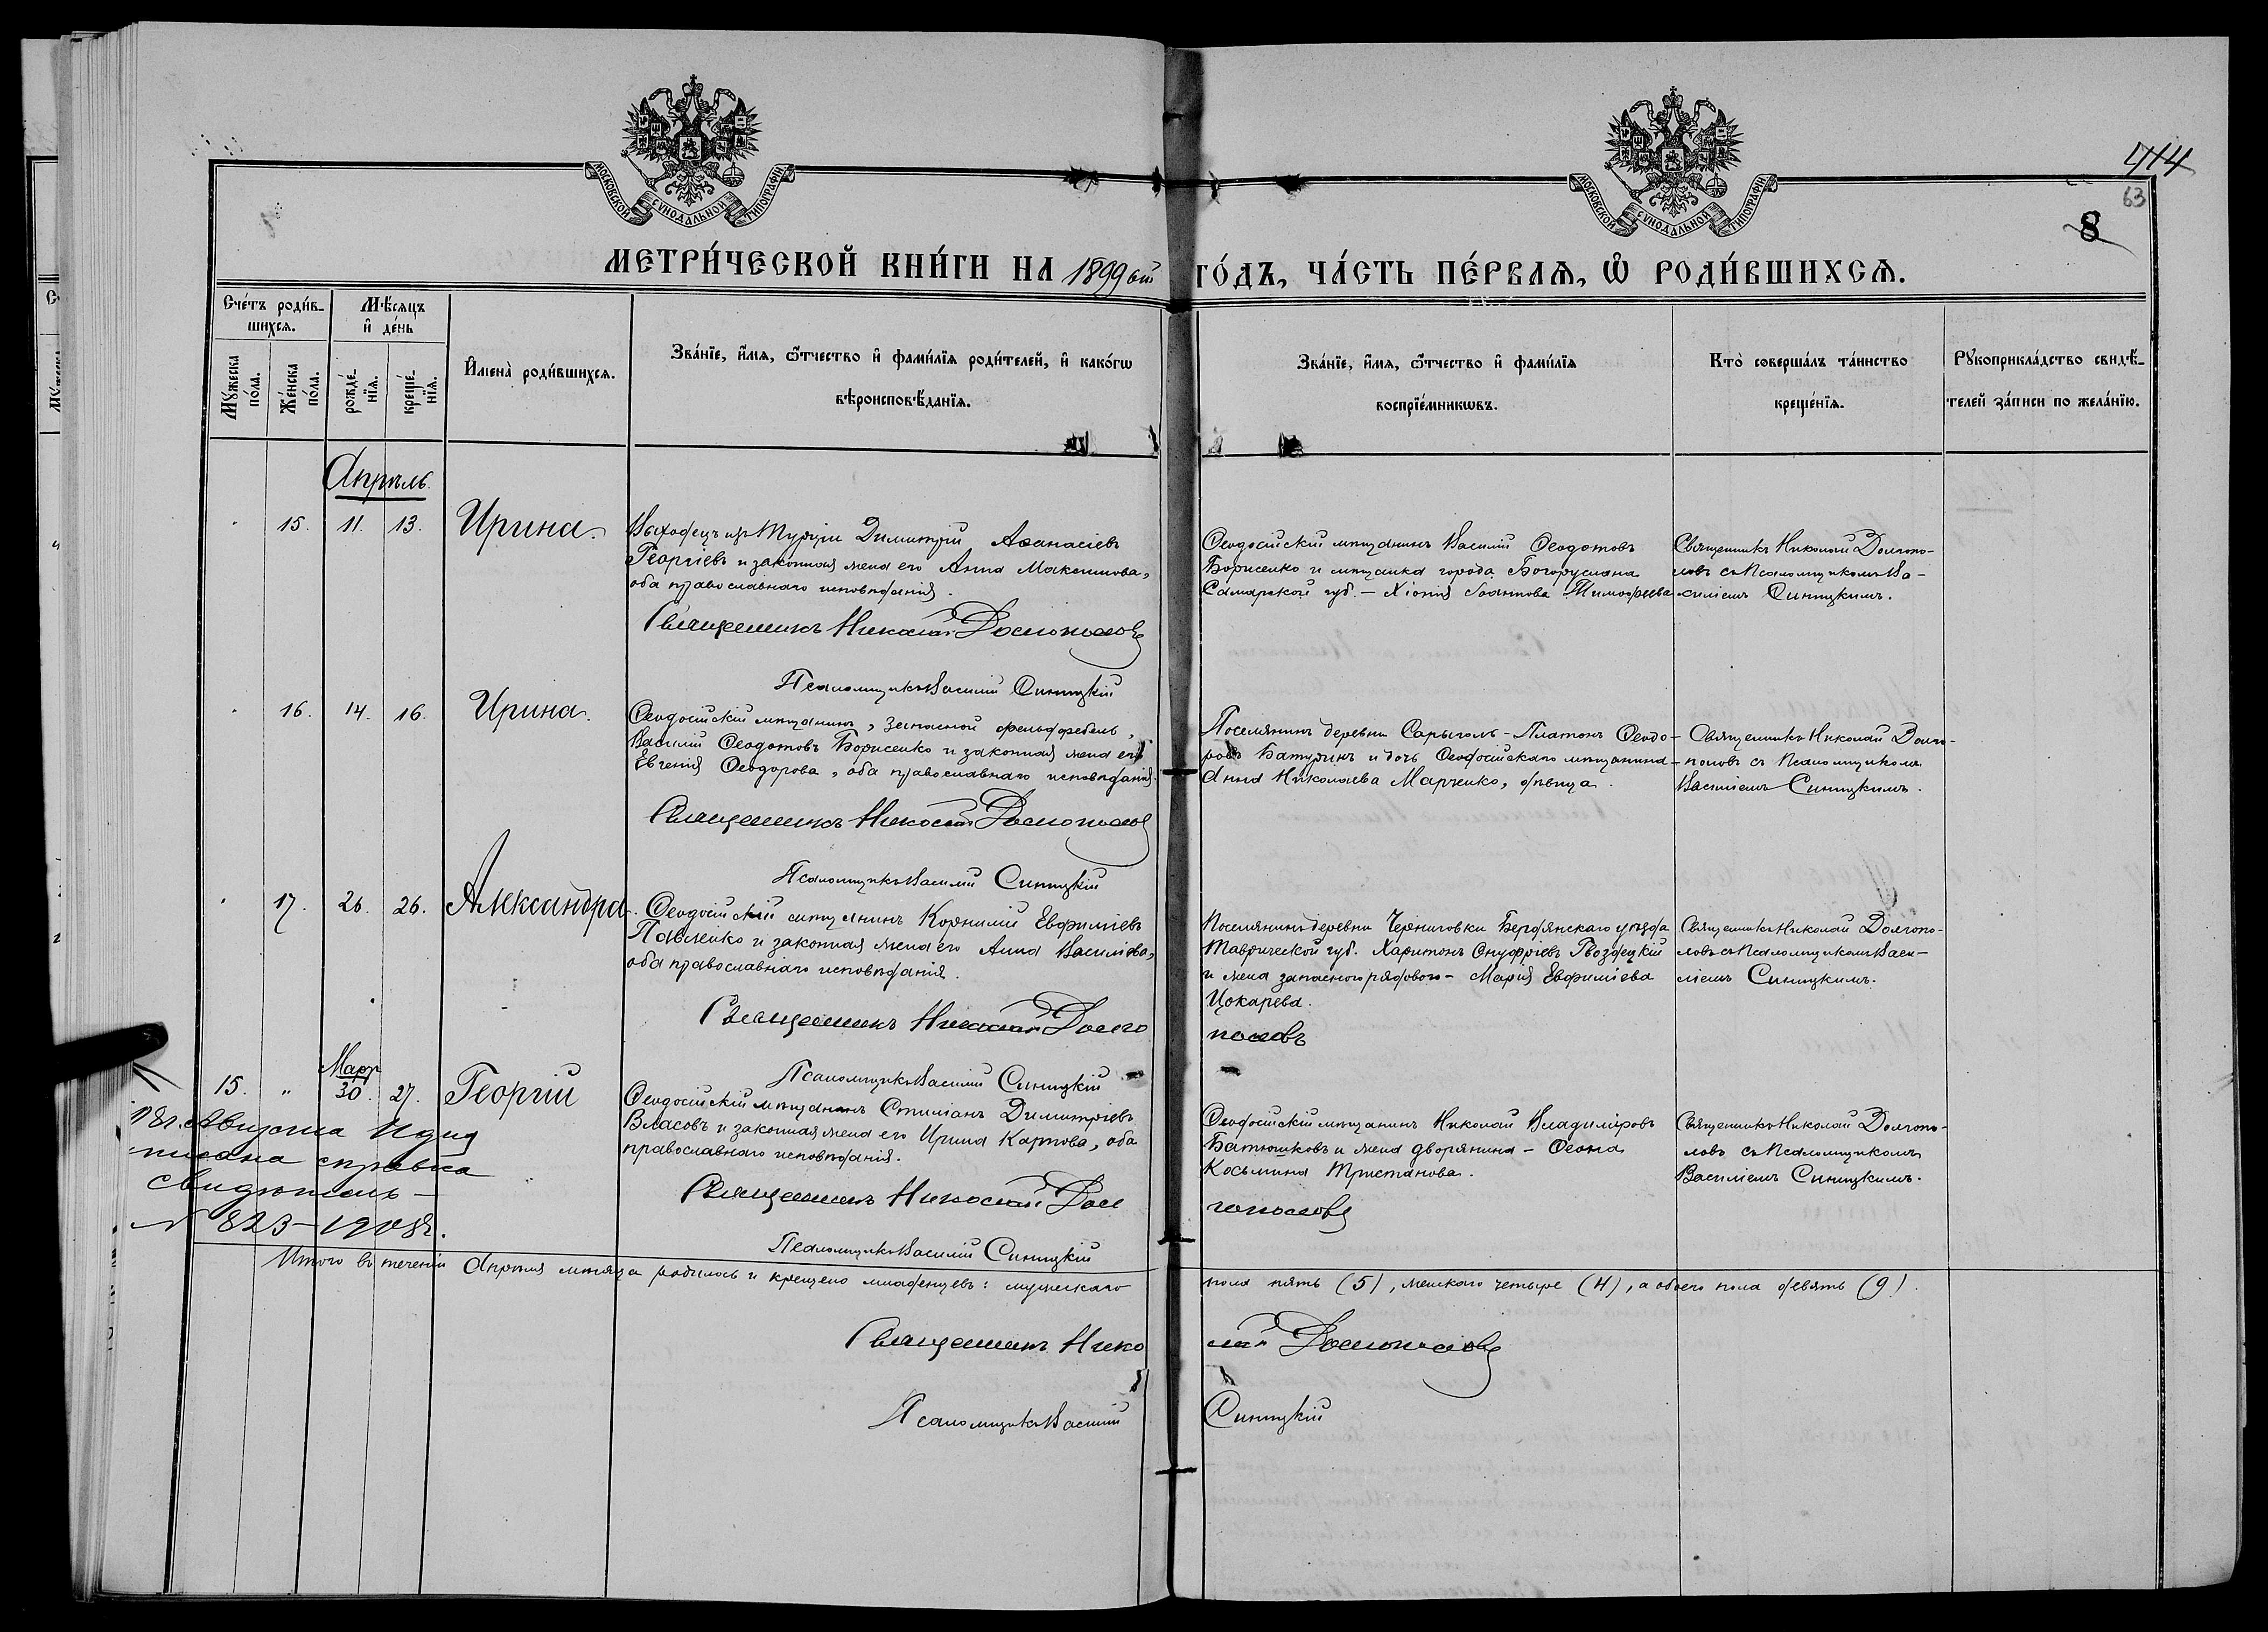 МОСКОВСКОЙ СѴНОДАЛЬНОЙ ТИПОГРАФІИ
МОСКОВСКОЙ СѴНОДАЛЬНОЙ ТИПОГРАФІИ
414
63
8
МЕТРИ́ЧЕСКОЙ КНИ́ГИ НА 1899 ый ГО́ДЪ, ЧА́СТЬ ПЕ́РВАЯ, Ѡ РОДИ́ВШИХСЯ.
Сче́тъ роди́в-
шихся.
Мꙋжеска по́ла.
Же́нска по́ла.
Мѣ́сяцъ
и҆ де́нь
рожде́-
нїя.
креще́-
нїя.
И҆мена̀ роди́вшихся.
Зва́нїе, и҆́мя, ѻ҆́тчество и҆ фами́лїя роди́телей, и҆ како́гѡ
вѣроисповѣ́данїя.
Зва́нїе, и҆́мя, ѻ҆́тчество и҆ фами́лїя
воспрїе́мникѡвъ.
Кто̀ соверша́лъ та́инство
креще́нїя.
Рꙋкоприкла́дство свидѣ́-
телей за́писи по жела́нїю.
Апрѣль.
15. 11. 13. Ирина.
Выходецъ изъ Турціи Димитрій Аѳанасіевъ
Георгіевъ и законная жена его Анна Максимова,
оба православнаго исповѣданія.
Священникъ Николай Долгополовъ
Псаломщикъ Василій Синицкій
Ѳеодосійскій мѣщанинъ Василій Ѳеодотовъ
Борисенко и мѣщанка города Богоруслана
Самарской губ. - Хіонія Тимофеева
Священникъ Николай Долгопо-
ловъ съ Псаломщикомъ Ва-
силіемъ Синицкимъ.
16. 14. 16. Ирина.
Ѳеодосійскій мѣщанинъ, запасной фельдфебель,
Василій Ѳеодотовъ Борисенко и законная жена его
Евгенія Ѳеодорова, оба православнаго исповѣданія.
Священникъ Николай Долгополовъ
Псаломщикъ Василій Синицкій
Поселянинъ деревни Сарыголь - Платонъ Ѳеодо-
ровъ Батуринъ и дочь Ѳеодосійскаго мѣщанина -
Анна Николаева Марченко, дѣвица.
Священникъ Николай Долго-
половъ съ Псаломщикомъ
Василіемъ Синицкимъ.
17. 26. 26. Александра.
Ѳеодосійскій мѣщанинъ Корнилій Евфиміевъ
Павленко и законная жена его Анна Василіева,
оба православнаго исповѣданія.
Священникъ Николай Долго
половъ
Псаломщикъ Василій Синицкій
Поселянинъ деревни Черниговки Бердянскаго уѣзда
Таврической губ. Харитонъ Онуфріевъ Гвоздецкій
и жена запасного рядового - Марія Евфиміева
Цокарева.
Священникъ Николай Долгопо-
ловъ съ Псаломщикомъ Васи-
ліемъ Синицкимъ.
15. " Мар. 30. 27. Георгій
Ѳеодосійскій мѣщанинъ Стиліанъ Димитріевъ
Власовъ и законная жена его Ирина Карпова, оба
православнаго исповѣданія.
Священникъ Николай Дол
гополовъ
Псаломщикъ Василій Синицкій
Ѳеодосійскій мѣщанинъ Николай Владиміровъ
Батюшковъ и жена дворянина - Ѳеона
Косьмина Тристанова.
Священникъ Николай Долгопо-
ловъ съ Псаломщикомъ
Василіемъ Синицкимъ.
Августа
справка
свидѣтель-
№ 823-1908г.
Итого въ теченіи Апрѣля мѣсяца родилось и крещено младенцевъ: мужескаго пола пять (5), женскаго четыре (4), а обоего пола девять (9).
Священникъ Николай Долгополовъ
Псаломщикъ Василій Синицкій